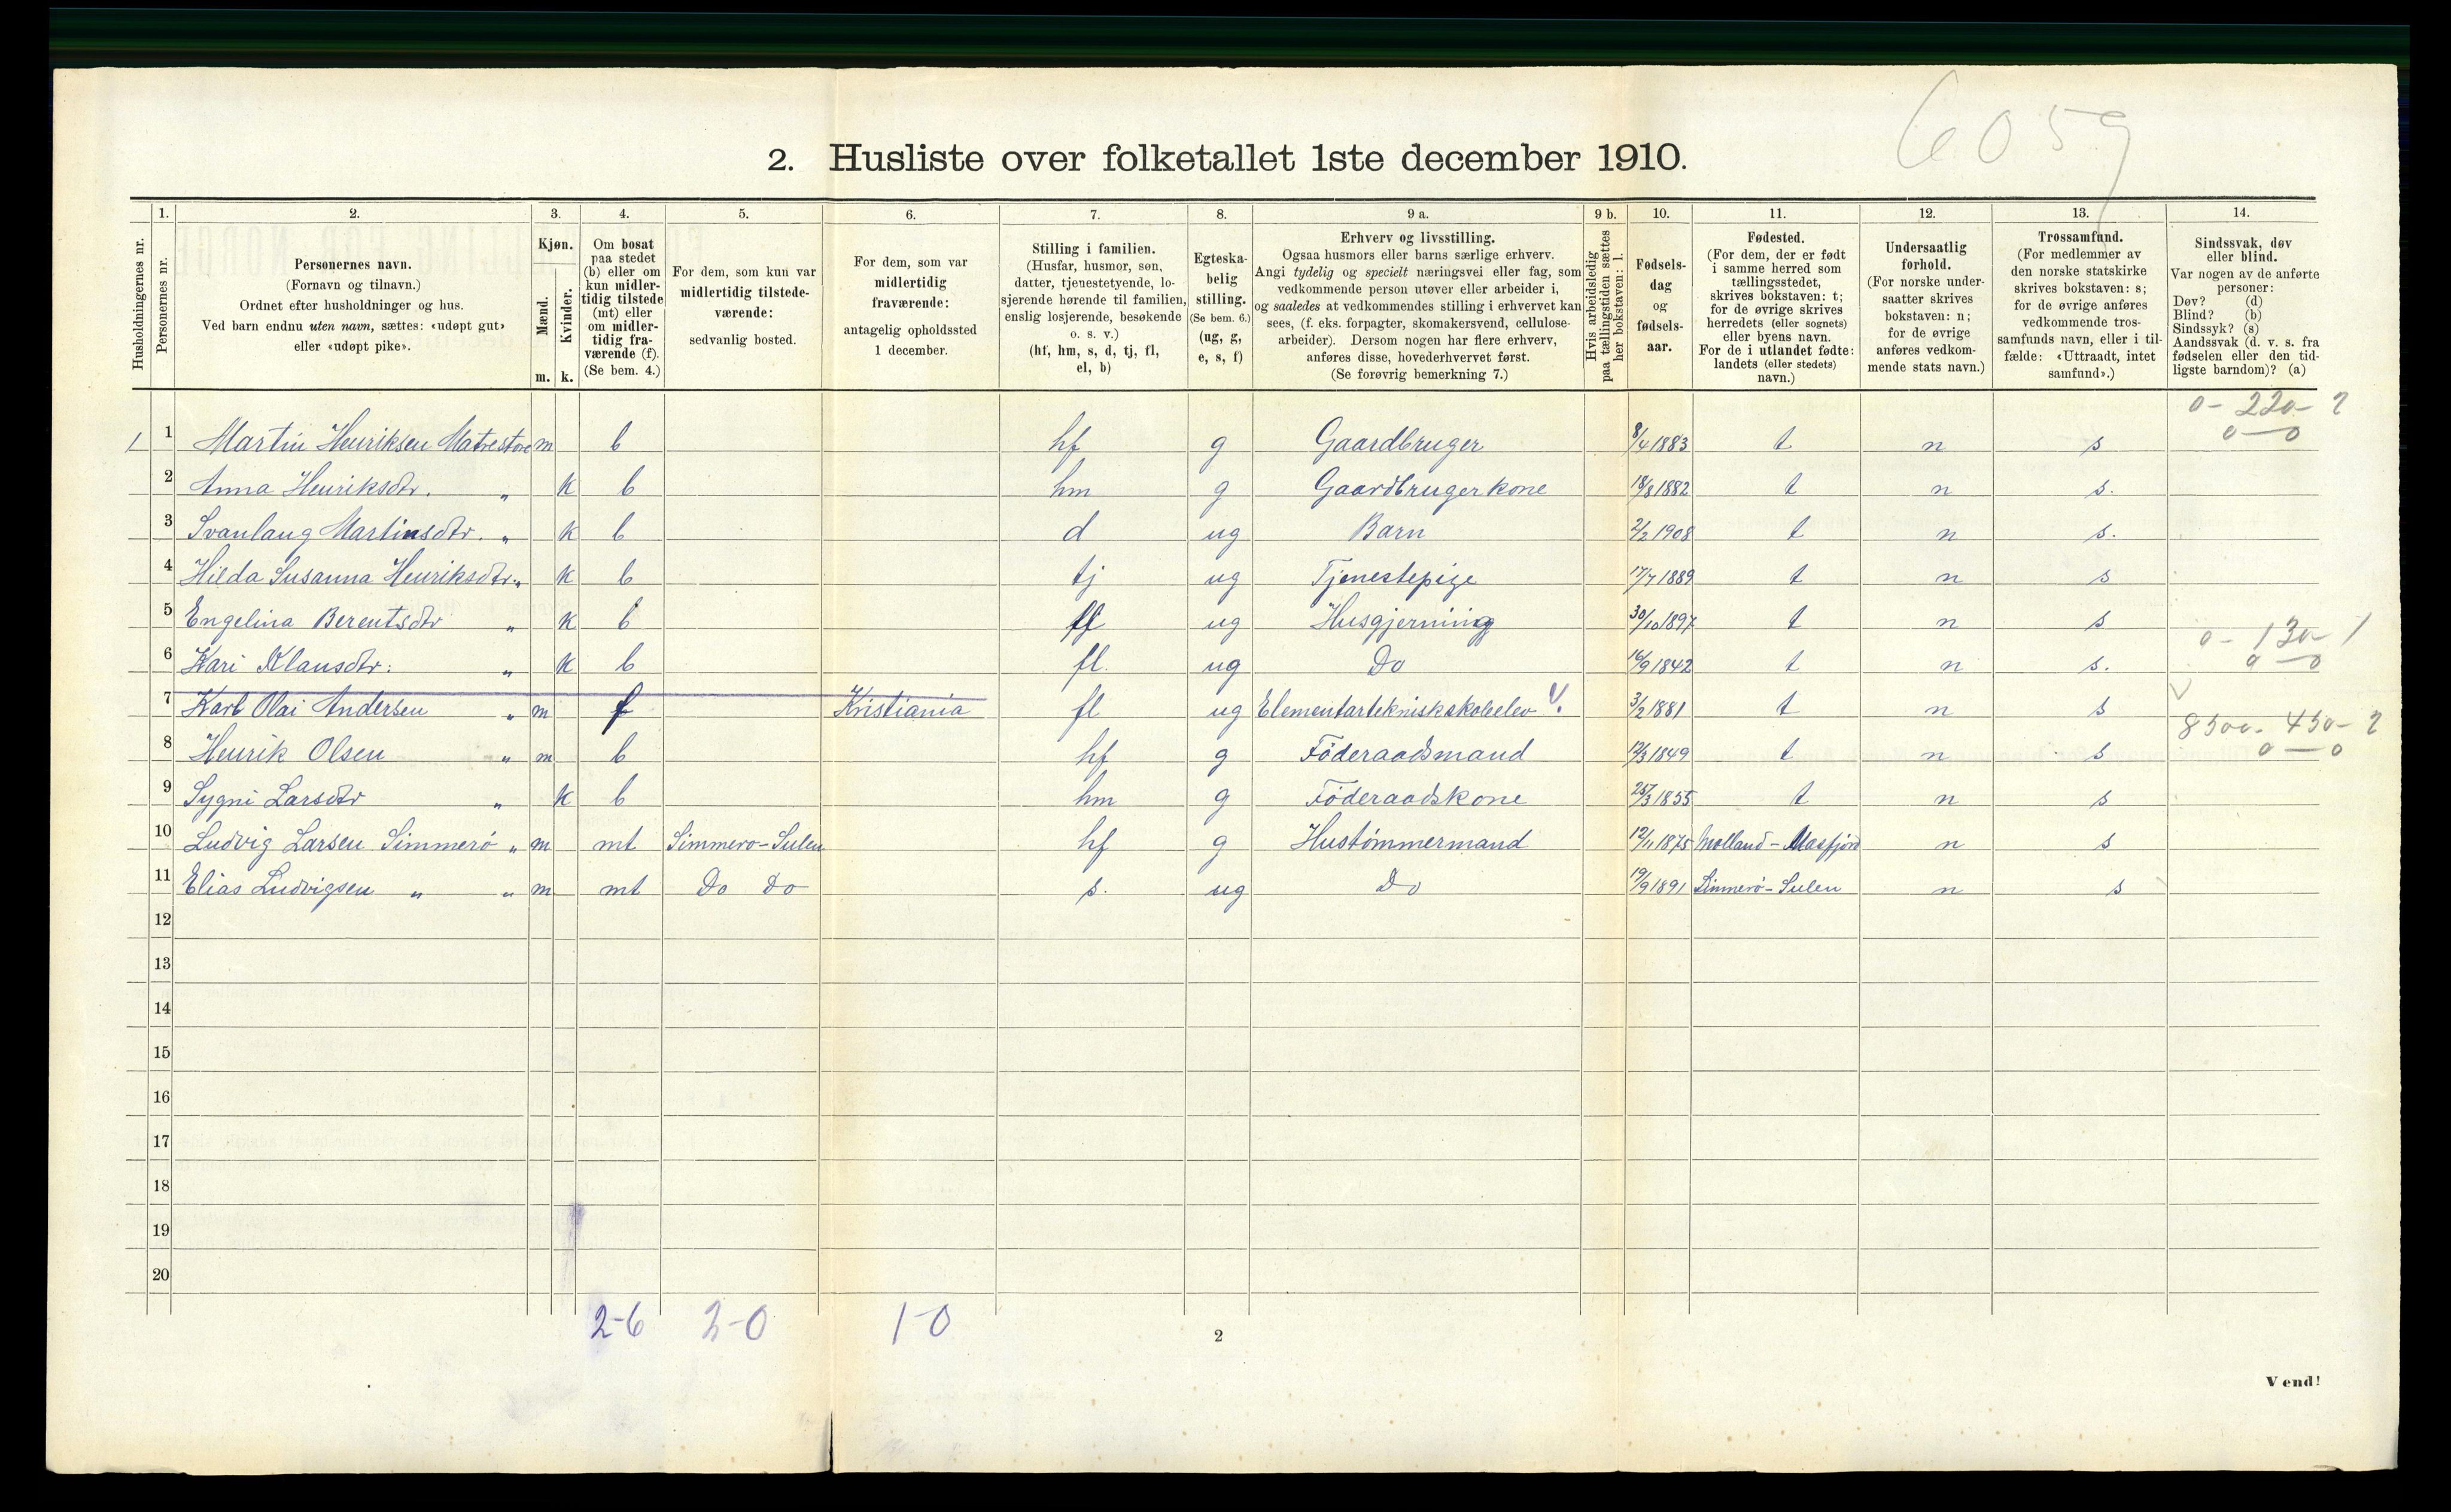 6059
2. Husliste over folketallet 1ste december 1910.
1. 2. 3. 4. 5. 6. 7. 8. 9 a. 9 b. 10. 11. 12. 13. 14.
Husholdningernes nr.
Personernes nr.
Personernes navn.
(Fornavn og tilnavn.)
Ordnet efter husholdninger og hus.
Ved barn endnu uten navn, sættes: «udøpt gut»
eller «udøpt pike».
Kjøn.
Mænd.
Kvinder.
m. k.
Om bosat
paa stedet
(b) eller om
kun midler-
tidig tilstede
(mt) eller
om midler-
tidig fra-
værende (f).
(Se bem. 4.)
For dem, som kun var
midlertidig tilstede-
værende:
sedvanlig bosted.
For dem, som var
midlertidig
fraværende:
antagelig opholdssted
1 december.
Stilling i familien.
(Husfar, husmor, søn,
datter, tjenestetyende, lo-
sjerende hørende til familien,
enslig losjerende, besøkende
o. s. v.)
(hf, hm, s, d, tj, fl,
el, b)
Egteska-
belig
stilling.
(Se bem. 6.)
(ug, g,
e, s, f)
Erhverv og livsstilling.
Ogsaa husmors eller barns særlige erhverv.
Angi tydelig og specielt næringsvei eller fag, som
vedkommende person utøver eller arbeider i,
og saaledes at vedkommendes stilling i erhvervet kan
sees, (f. eks. forpagter, skomakersvend, cellulose-
arbeider). Dersom nogen har flere erhverv,
anføres disse, hovederhvervet først.
(Se forøvrig bemerkning 7.)
Hvis arbeidsledig
paa tællingstiden sættes
her bokstaven: l.
Fødsels-
dag
og
fødsels-
aar.
Fødested.
(For dem, der er født
i samme herred som
tællingsstedet,
skrives bokstaven: t;
for de øvrige skrives
herredets (eller sognets)
eller byens navn.
For de i utlandet fødte:
landets (eller stedets)
navn.)
Undersaatlig
forhold.
(For norske under-
saatter skrives
bokstaven: n;
for de øvrige
anføres vedkom-
mende stats navn.)
Trossamfund.
(For medlemmer av
den norske statskirke
skrives bokstaven: s;
for de øvrige anføres
vedkommende tros-
samfunds navn, eller i til-
fælde: «Uttraadt, intet
samfund».)
Sindssvak, døv
eller blind.
Var nogen av de anførte
personer:
Døv? (d)
Blind? (b)
Sindssyk? (s)
Aandssvak (d. v. s. fra
fødselen eller den tid-
ligste barndom)? (a)
0 - 220 - 2
0 — 0
1 1 Martin Henriksen Matrestøre m b hf g Gaardbruger 8/4 1883 t n s
2 Anna Henriksdtr. „ k b hm g Gaardbrugerkone 18/8 1882 t n s.
3 Svanlaug Martinsdtr. „ k b d ug Barn 2/2 1908 t n s.
4 Hilda Susanna Henriksdtr. „ k b tj ug Tjenestepige 17/7 1889 t n s
5 Engelina Berentsdtr „ k b fl ug Husgjerning 30/10 1897 t n s
0 - 130 - 1
0 — 0
6 Kari Klausdtr. „ k b fl. ug Do 16/9 1842 t n s.
7 Karl Olai Andersen „ m f Kristiania fl ug Elementartekniskskoleelev 3/2 1881 t n s
8500 - 450 - 2
0 — 0
8 Henrik Olsen „ m b hf g Föderaadsmand 12/3 1849 t n s
9 Sygni Larsdtr „ k b hm g Föderaadskone 25/3 1855 t n s
10 Ludvig Larsen Simmerö „ m mt Simmerø-Sulen hf g Hustömmermand 12/11 1875 Molland - Masfjord n s
11 Elias Ludvigsen „ „ m mt Do Do s. ug Do 19/9 1891 Simmerö - Sulen n s
12
13
14
15
16
17
18
19
20
2-6 2-0 1-0
2
Vend!